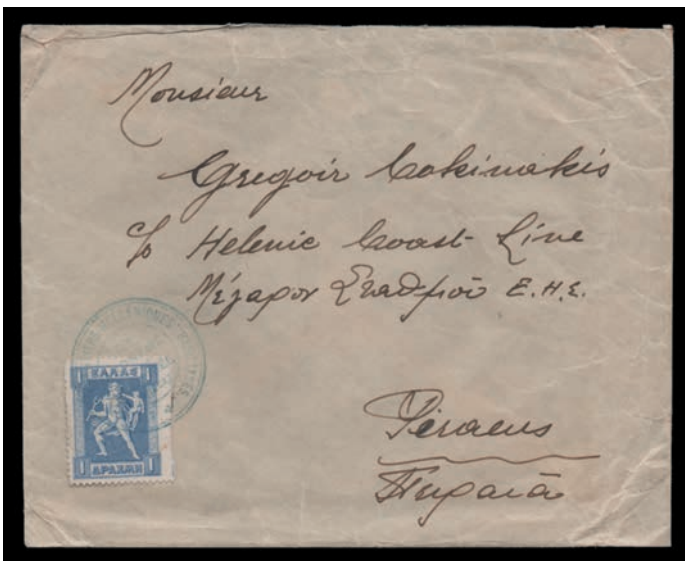 Monsieur
Gregoir Cokinakis
c/o Helenic Coast Line
Μέγαρον Σταθμού Ε.Η.Σ.
Piraeus
Πειραιά
1 ΕΛΛΑΣ 1
1 ΔΡΑΧΜΗ 1